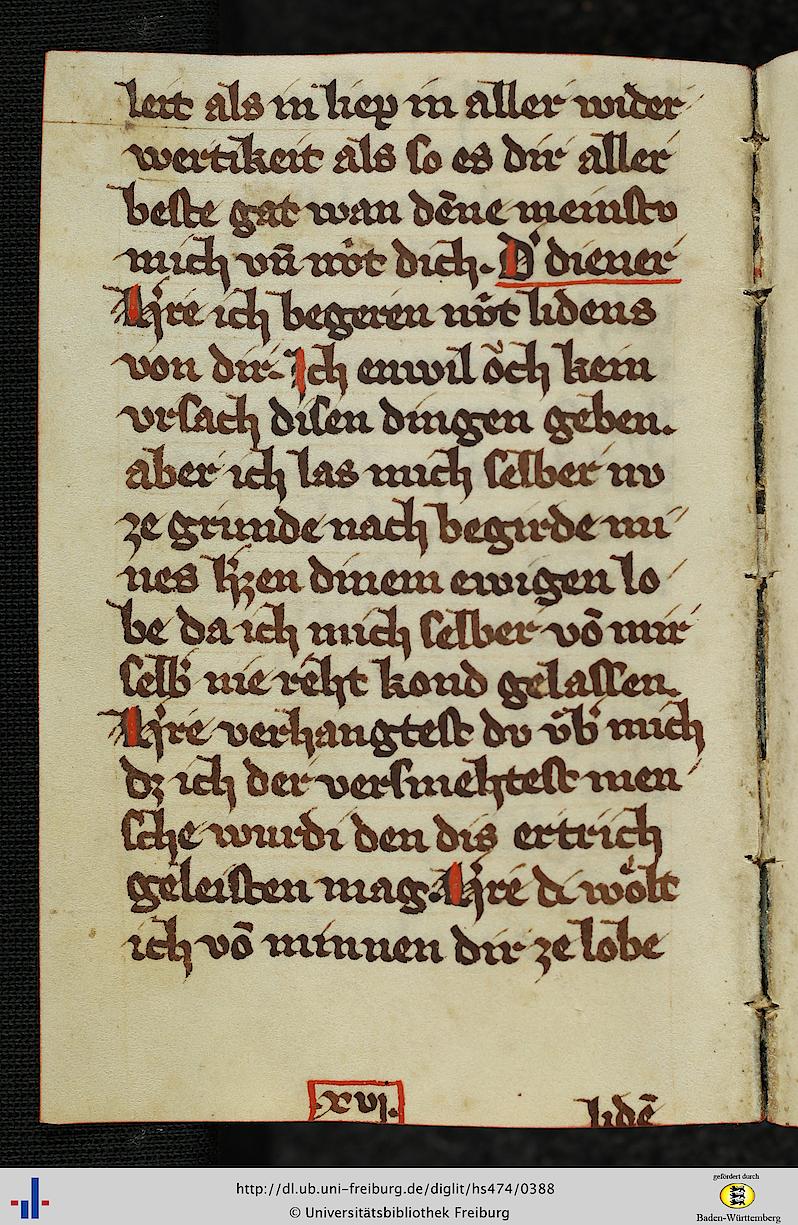 leit als in liep in aller wider
wertikeit als so es dir aller
beste gat wan dēne meinstv
mich vn̄ nv̂t dich. D' diener
H're ich begeren nv̂t lidens
von dir. Ich enwil o̊ch kein
vrsach disen dingen geben.
aber ich las mich selber nv
ze grunde nach begirde mi
nes h'zen dinem ewigen lo
be da ich mich selber vō mir
selb' nie reht kond gelassen.
H're verhangtest dv v̂b' mich
dz ich der versmehtest men
sche wurdi den dis ertrich
geleisten mag. H're di wo̊lt
ich vō minnen dir ze lobe
.xvj.
lidē
http://dl.ub.uni-freiburg.de/diglit/hs474/0388
© Universitätsbibliothek Freiburg
gefördert durch
Baden-Württemberg